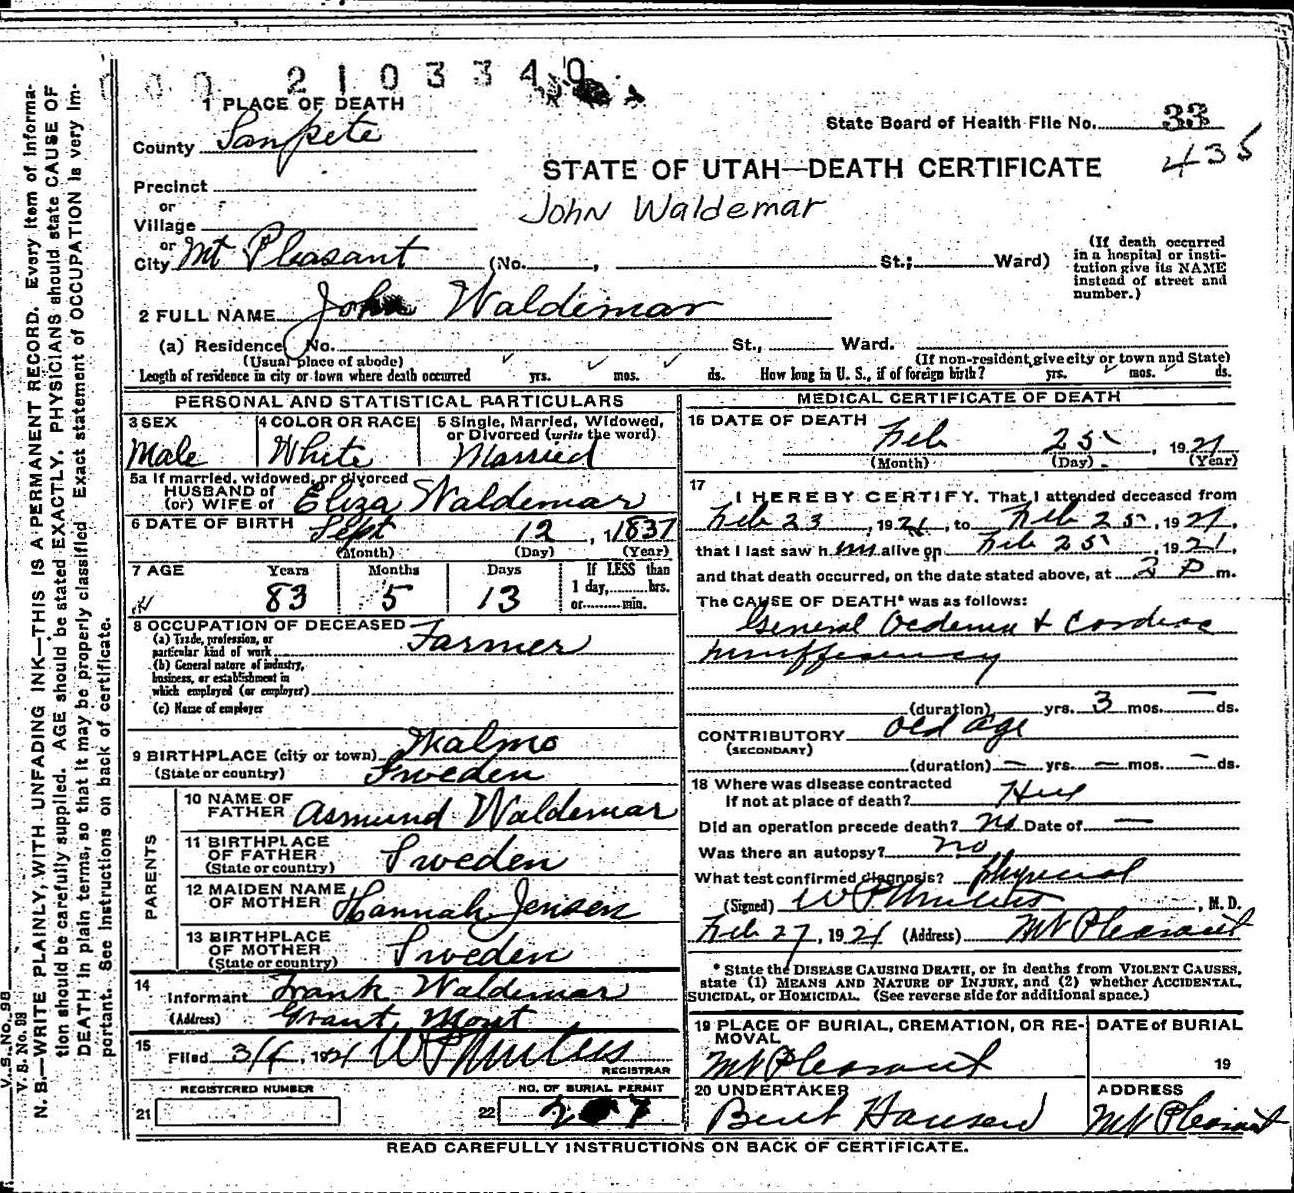 2 1 0 3 3 4 0
1 PLACE OF DEATH
County Sanpete
State Board of Health File No. 33
435
STATE OF UTAH—DEATH CERTIFICATE
John Waldemar
Precinct
or
Village
or
City Mt Pleasant (No. , St.; Ward)
(If death occurred in a hospital or insti-
tution give its NAME
instead of street and
number.)
2 FULL NAME John Waldemar
(a) Residence No. St., Ward.
(Usual place of abode) (If non-resident give city or town and State)
Length of residence in city or town where death occurred yrs. mos. ds. How long in U. S., if of foreign birth? yrs. mos. ds.
PERSONAL AND STATISTICAL PARTICULARS
3 SEX 4 COLOR OR RACE 5 Single, Married, Widowed,
or Divorced (write the word)
Male White Married
5a If married, widowed, or divorced
HUSBAND of
(or) WIFE of Eliza Waldemar
6 DATE OF BIRTH Sept 12, 1837
(Month) (Day) (Year)
7 AGE Years Months Days If LESS than
1 day, hrs.
or min.
83 5 13
8 OCCUPATION OF DECEASED
(a) Trade, profession, or
particular kind of work Farmer
(b) General nature of industry,
business, or establishment in
which employed (or employer)
(c) Name of employer
9 BIRTHPLACE (city or town) Malmo
(State or country) Sweden
PARENTS
10 NAME OF
FATHER Asmund Waldemar
11 BIRTHPLACE
OF FATHER
(State or country) Sweden
12 MAIDEN NAME
OF MOTHER Hannah Jensen
13 BIRTHPLACE
OF MOTHER
(State or country) Sweden
14
Informant Frank Waldemar
(Address) Grant, Mont
15
Filed 3/4, 1921
REGISTRAR
REGISTERED NUMBER NO. OF BURIAL PERMIT
21 22 207
MEDICAL CERTIFICATE OF DEATH
16 DATE OF DEATH
Feb 25, 1921
(Month) (Day) (Year)
17
I HEREBY CERTIFY, That I attended deceased from
Feb 23, 1921, to Feb 25, 1921,
that I last saw him alive on Feb 25, 1921,
and that death occurred, on the date stated above, at 2 P m.
The CAUSE OF DEATH* was as follows:
General Oedema & Cardiac
Insufficiency
(duration) yrs. 3 mos. — ds.
CONTRIBUTORY Old Age
(SECONDARY)
(duration) — yrs. — mos. — ds.
18 Where was disease contracted
If not at place of death? Here
Did an operation precede death? No Date of —
Was there an autopsy? no
What test confirmed diagnosis? Physical
(Signed) , M. D.
Feb 27, 1921 (Address) Mt Pleasant
* State the DISEASE CAUSING DEATH, or in deaths from VIOLENT CAUSES,
state (1) MEANS AND NATURE OF INJURY, and (2) whether ACCIDENTAL,
SUICIDAL, or HOMICIDAL. (See reverse side for additional space.)
19 PLACE OF BURIAL, CREMATION, OR RE-
MOVAL
Mt Pleasant
DATE of BURIAL
19
20 UNDERTAKER
Bent Hansen
ADDRESS
Mt Pleasant
READ CAREFULLY INSTRUCTIONS ON BACK OF CERTIFICATE.
V. S. No. 98
V. S. No. 98
N. B.—WRITE PLAINLY, WITH UNFADING INK—THIS IS A PERMANENT RECORD. Every item of informa-
tion should be carefully supplied. AGE should be stated EXACTLY. PHYSICIANS should state CAUSE OF
DEATH in plain terms, so that it may be properly classified. Exact statement of OCCUPATION is very im-
portant. See instructions on back of certificate.